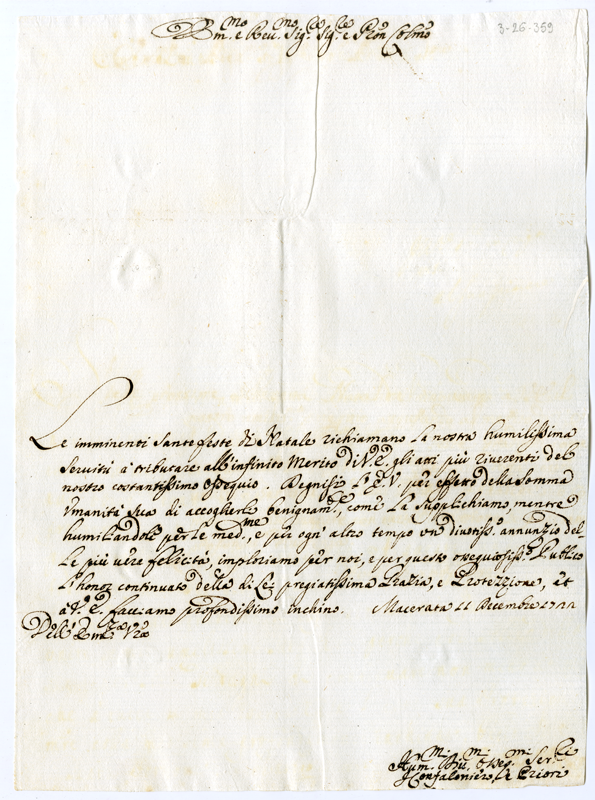 Em.mo e Reu.mo Sig.re Sig.re e Pron Colmo
3-26-359
Le imminenti Sante feste di Natale richiamano la nostra humilissima
Seruitù à tributare all'infinito Merito di V.E. gli atti più riuerenti del
nostro costantissimo ossequio. Degnisi l'E.V. per effetto della Somma
Vmanità Sua di accoglierli benignam.te, come La Supplichiamo, mentre
humiliandole per le med.me, e per ogni altro tempo vn diuotiss.o annunzio del
le più uere felicità, imploriamo per noi, e per questo ossequiosiss.o Publico
l'honor continuato della di Lei pregiatissima Grazia, e Protezzione, et
à V.E. facciamo profondissimo inchino. Macerata 11 Decembre
Dell' Em.za V.ra
Hum.mi Diu.mi Osseq.mi Ser.ri
Il Confaloniere, e Priori